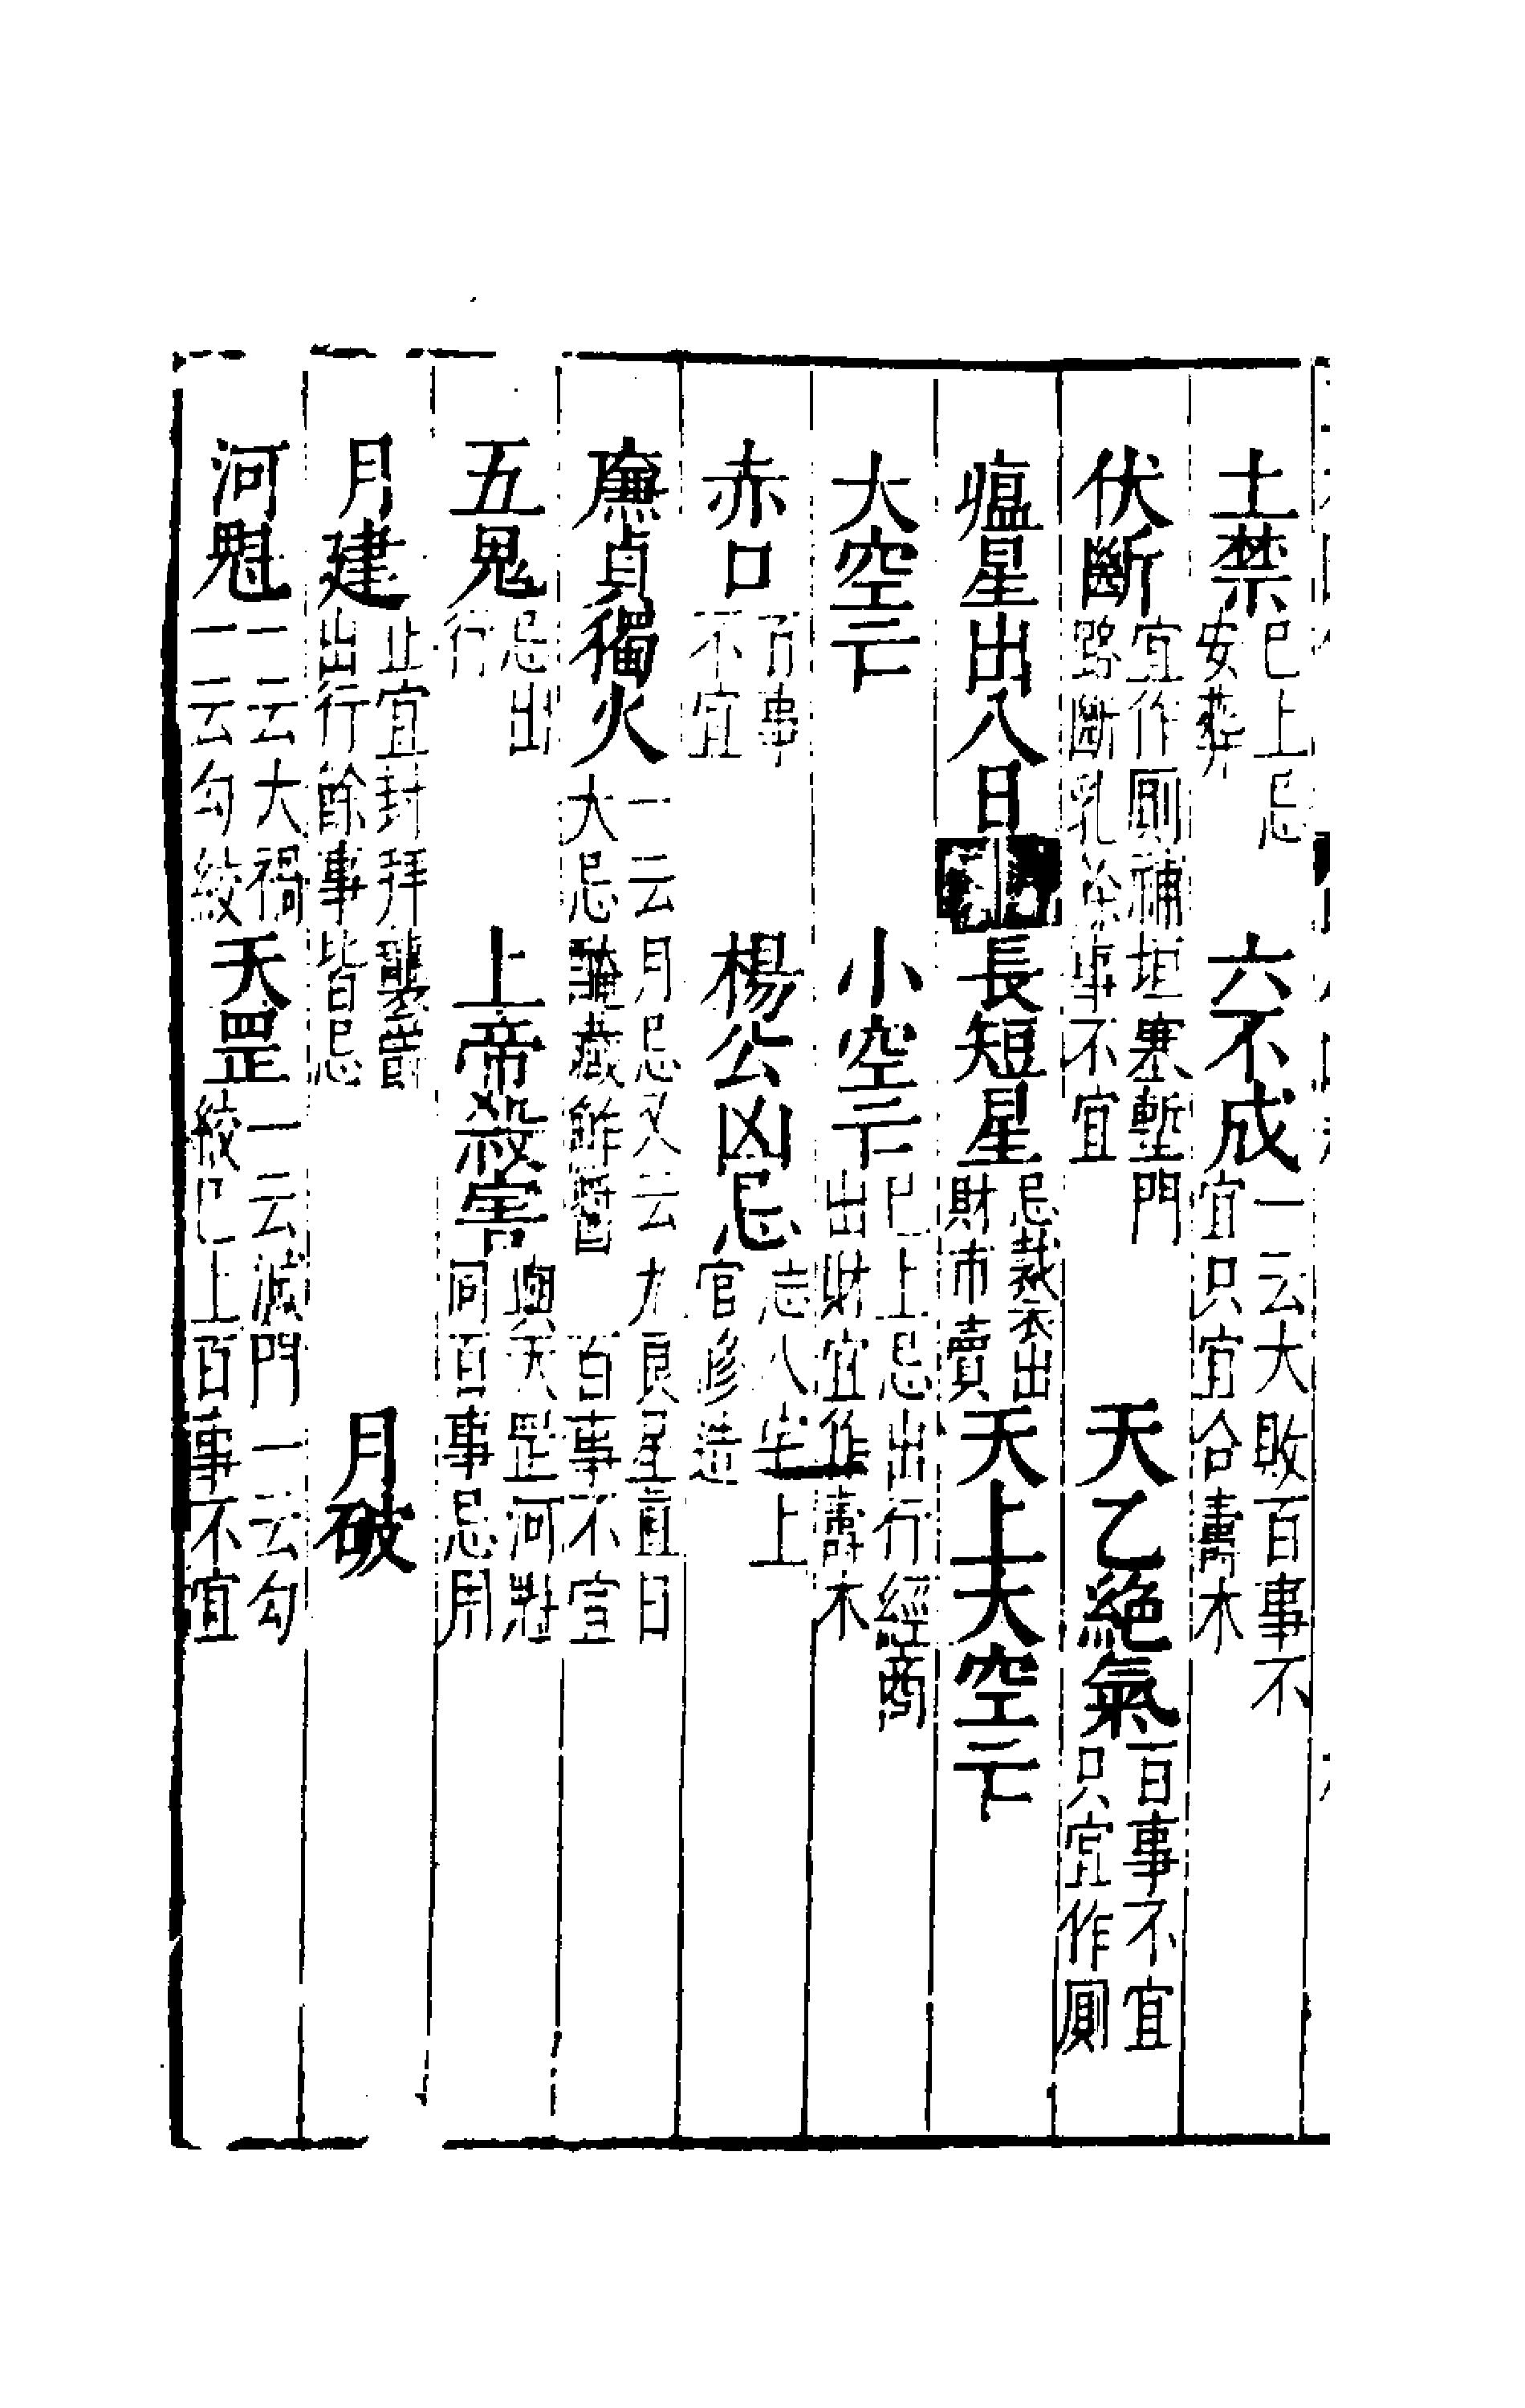 土禁已上忌安葬　六不成一云大敗百事不宜只宜合壽木
伏斷宜作厠補垣塞塹門路斷乳餘事不宜　天乙絕氣百事不宜只宜作厠
瘟星出入日　長短星忌裁衣出財市賣　天上大空亡
大空亡　小空亡已上忌出行經商出財宜作壽木
赤口百事不宜　楊公凶忌忌入宅上官修造
廉貞獨火一云月忌又云九良星直日大忌醃藏鮓醬百事不宜
五鬼忌出行　上帝殺害與天罡河魁同百事忌用
月建止宜封拜襲爵出行餘事皆忌　月破
河魁一云大禍一云勾絞　天罡一云滅門一云勾絞已上百事不宜